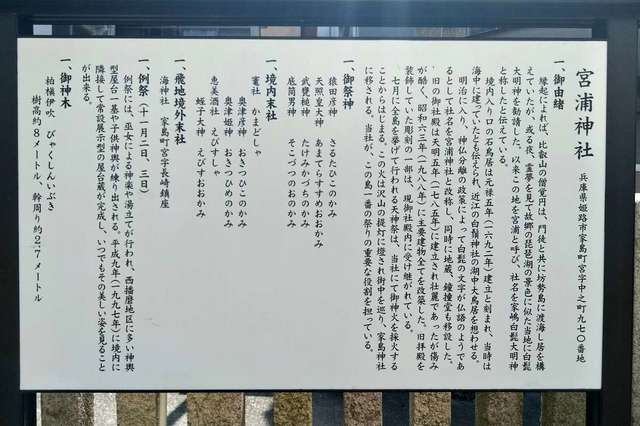 宮浦神社 兵庫県姫路市家島町宮字中之町九七〇番地
一、御由緒
縁起によれば、比叡山の僧覚円は、門徒と共に坊勢島に渡海し居を構
えていたが、或る夜、霊夢を見て故郷の琵琶湖の景色に似た当地に白髭
大明神を勧請した。以来この地を宮浦と呼び、社名を家嶋白髭大明神
と称したと伝えている。
境内入り口の石鳥居は元禄五年(一六九二年)建立と刻まれ、当時は
海中に建っていたとも伝えられ、近江の白鬚神社の湖中大鳥居を想わせる。
明治に入り、神仏分離の政策によって白髭の文字が仏語のようであ
るとして社名を宮浦神社と改称し、同時に地蔵、鐘撞堂も移設した。
旧の御社殿は天明五年(一七八五年)に建立され壮麗であったが傷み
が酷く、昭和六三年(一九八八年)に主要建物全てを改築した。旧拝殿を
装飾していた彫刻の一部は、現御社殿内に受け継がれている。
七月に全島を挙げて行われる天神祭は、当社にて御神火を採火する
ことからはじまる。この火は沢山の提灯に燈され街中を巡り、家島神社
に移される。当社が、この島一番の祭りの重要な役割を担っている。
一、御祭神
猿田彦神 さるたひこのかみ
天照皇大神 あまてらすすめおおかみ
武甕槌神 たけみかづちのかみ
底筒男神 そこつつのおのかみ
一、境内末社
竃社 かまどしゃ
奥津彦神 おきつひこのかみ
奥津姫神 おきつひめのかみ
恵美酒社 えびすしゃ
蛭子大神 えびすおおかみ
一、飛地境外末社
海神社 家島町宮字長崎鎮座
一、例祭(十一月二日、三日)
例祭には、巫女による神楽や湯立てが行われ、西播磨地区に多い神輿
型屋台一基や子供神輿が練り出される。平成九年(一九九七年)に境内に
隣接して常設展示型の屋台蔵が完成し、いつでもその美しい姿を見ること
が出来る。
一、御神木
柏槇伊吹 びゃくしんいぶき
樹高約8メートル、幹周り約2.7メートル